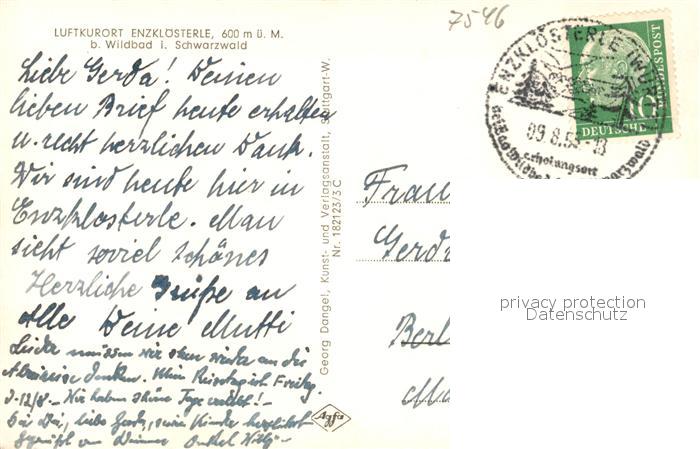 7546
LUFTKURORT ENZKLÖSTERLE, 600 m ü. M.
b. Wildbad i. Schwarzwald
Liebe Gerda! Deinen
lieben Brief heute erhalten
u. recht herzlichen Dank.
Wir sind heute hier in
Enzklösterle. Man
sieht soviel schönes
Herzliche Grüße an
Alle Deine Mutti
Leider müssen wir schon wieder an die
Abreise denken. Freitag
Wir haben schöne Tage
liebe Gerda, Kinder herzlichst
gegrüßt von Onkel Willy
Georg Dangel, Kunst- und Verlagsanstalt, Stuttgart-W.
Nr. 182123/3 C
Agfa
ENZKLÖSTERLE (WÜRTT
09.8.5
erholungsort
bei Bad Wildbad Schwarzwald
10
DEUTSCHE
BUNDESPOST
Frau
Gerd
Berl
privacy protection
Datenschutz